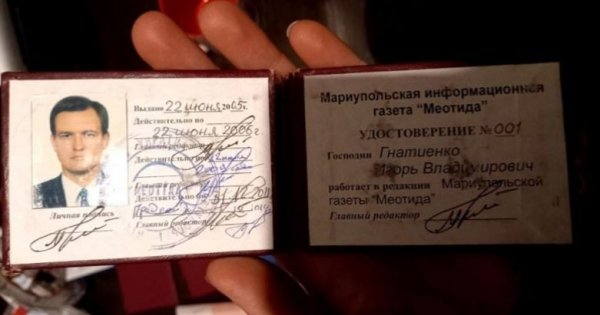 Выдано 22 июня 2005г.
Действительно по
22 июня 2006г
Главный редактор
Действительно по
Действительно по 31.12.201
Главный редактор
Личная подпись
Мариупольская информационная
газета "Меотида"
УДОСТОВЕРЕНИЕ №001
Господин Гнатиенко
Игорь Владимирович
работает в редакции Мариупольской
газеты "Меотида"
Главный редактор